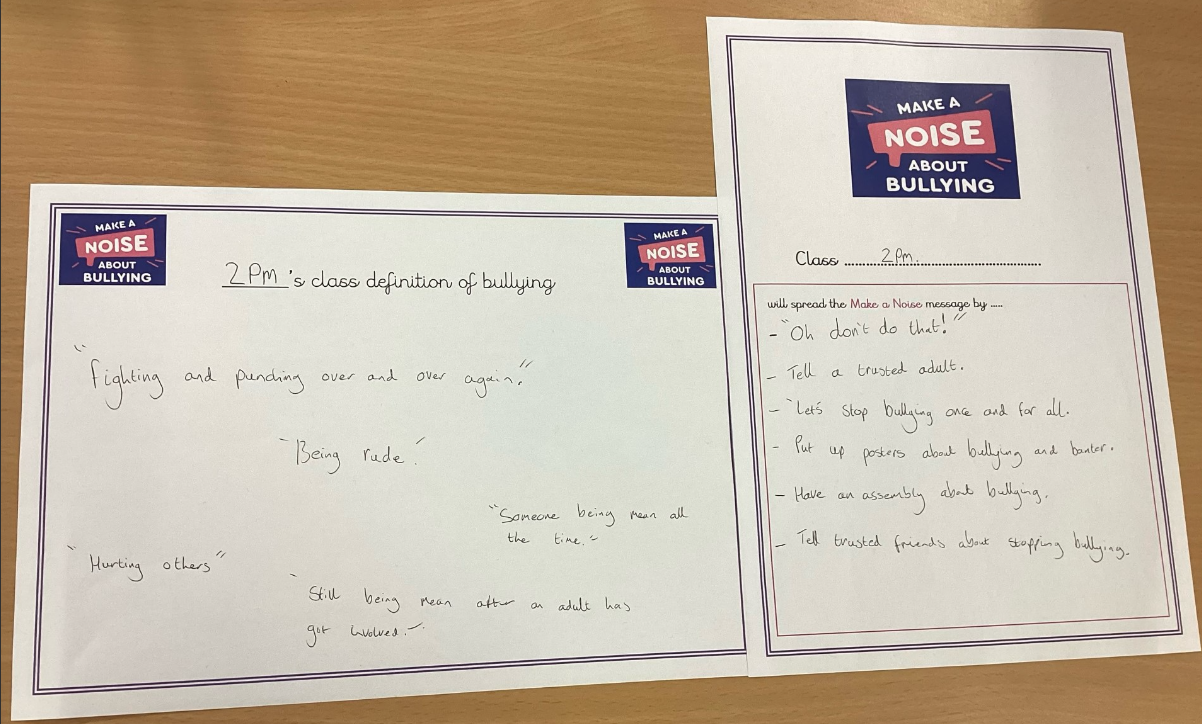 MAKE A
NOISE
ABOUT
BULLYING
MAKE A
NOISE
ABOUT
BULLYING
2Pm's class definition of bullying
"fighting and punching over and over again."
"Being rude."
"Someone being mean all
the time."
"Hurting others"
"Still being mean after an adult has
got involved."
MAKE A
NOISE
ABOUT
BULLYING
Class ...... 2Pm. ......
will spread the Make a Noise message by .....
- "Oh don't do that!"
- Tell a trusted adult.
- "Let's stop bullying once and for all.
- Put up posters about bullying and banter.
- Have an assembly about bullying.
- Tell trusted friends about stopping bullying.